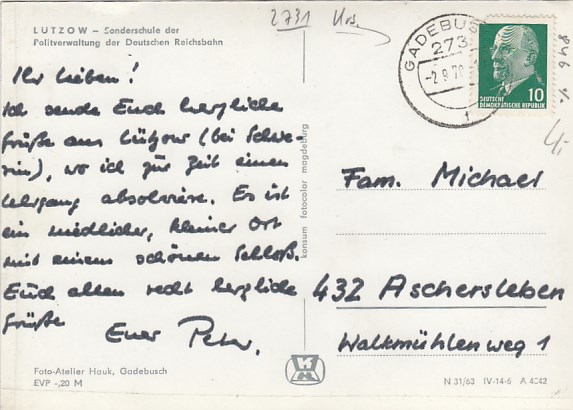 LÜTZOW — Sonderschule der
Politverwaltung der Deutschen Reichsbahn
2731
GADEBUSCH
273
-2.9.70
1
DEUTSCHE
DEMOKRATISCHE REPUBLIK
10
846
Ihr Lieben!
Ich sende Euch herzliche
Grüße aus Lützow (bei Schwe-
rin), wo ich zur Zeit einen
Lehrgang absolviere. Es ist
ein niedlicher, kleiner Ort
mit einem schönen Schloß.
Euch allen recht herzliche
Grüße
Euer Peter.
konsum fotocolor magdeburg
Fam. Michaer
432 Aschersleben
Walkmühlenweg 1
Foto-Atelier Hauk, Gadebusch
EVP -,20 M
N 31/63 IV-14-6 A 4342